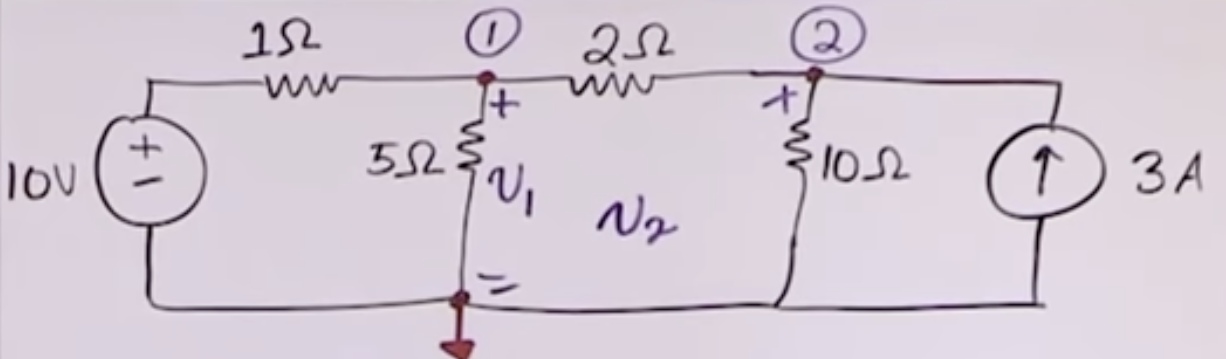 1Ω
①
2Ω
②
+
+
10V
+
−
5Ω
v₁
v₂
10Ω
3A
=